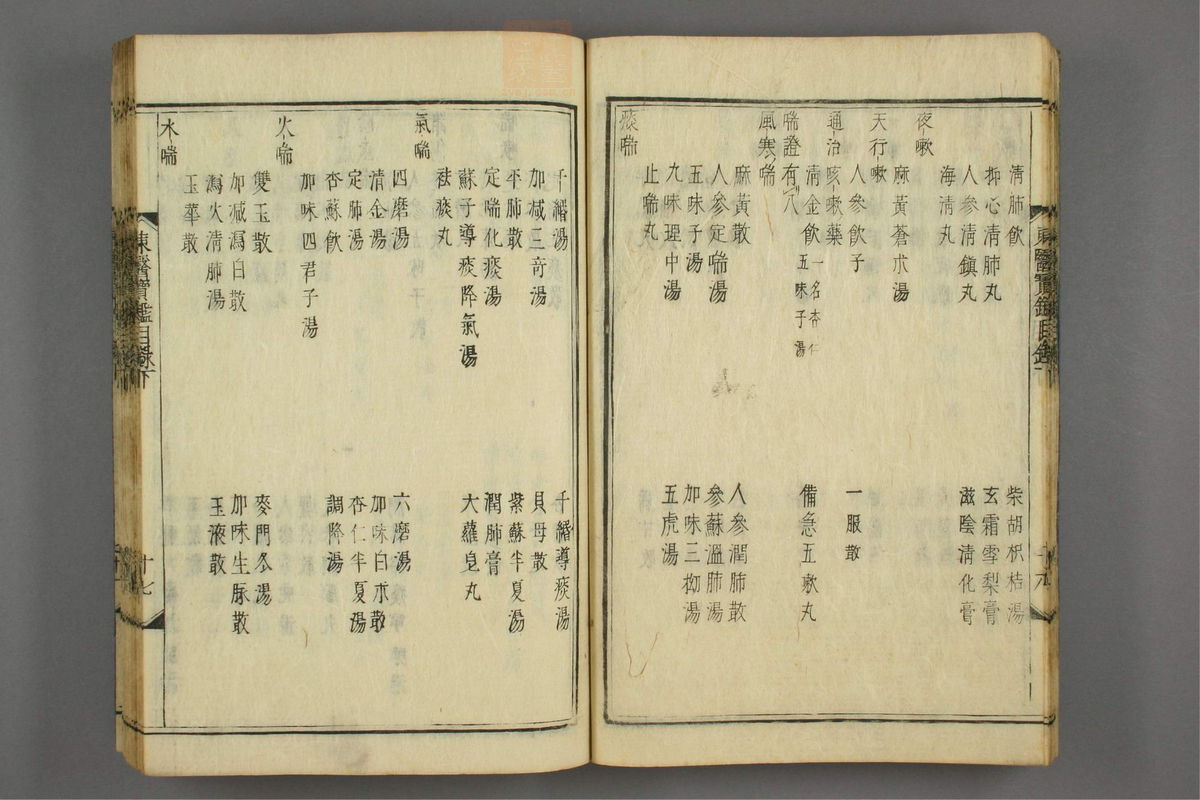 清肺飮　柴胡枳桔湯
抑心清肺丸　玄霜雪梨膏
人參清鎭丸　滋陰清化膏
海清丸
夜嗽
麻黃蒼朮湯
天行嗽
人參飮子　一服散
通治咳嗽藥
清金飮　一名杏仁五味子湯　備急五嗽丸
喘證有八
風寒喘
麻黃散　人參潤肺散
人參定喘湯　參蘇溫肺湯
五味子湯　加味三拗湯
九味理中湯　五虎湯
止喘丸
痰喘
千緡湯　千緡導痰湯
加減三奇湯　貝母散
平肺散　紫蘇半夏湯
定喘化痰湯　潤肺膏
蘇子導痰降氣湯　大蘿皂丸
祛痰丸
氣喘
四磨湯　六磨湯
清金湯　加味白朮散
定肺湯　杏仁半夏湯
杏蘇飮　調降湯
加味四君子湯
火喘
雙玉散　麥門冬湯
加減瀉白散　加味生脈散
瀉火清肺湯　玉液散
玉華散
水喘
東醫寶鑑目錄下　十七